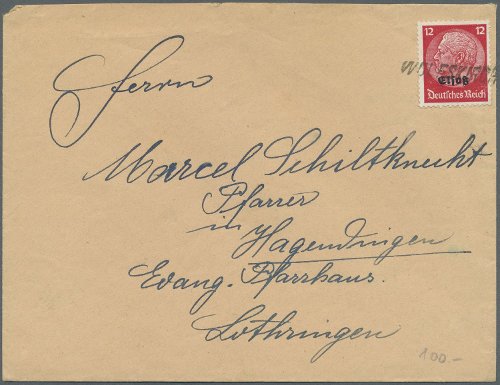 12 12
Elsaß
Deutsches Reich
Herrn
Marcel Schiltknecht
Pfarrer
in
Hagendingen
Evang. Pfarrhaus.
Lothringen
100.-